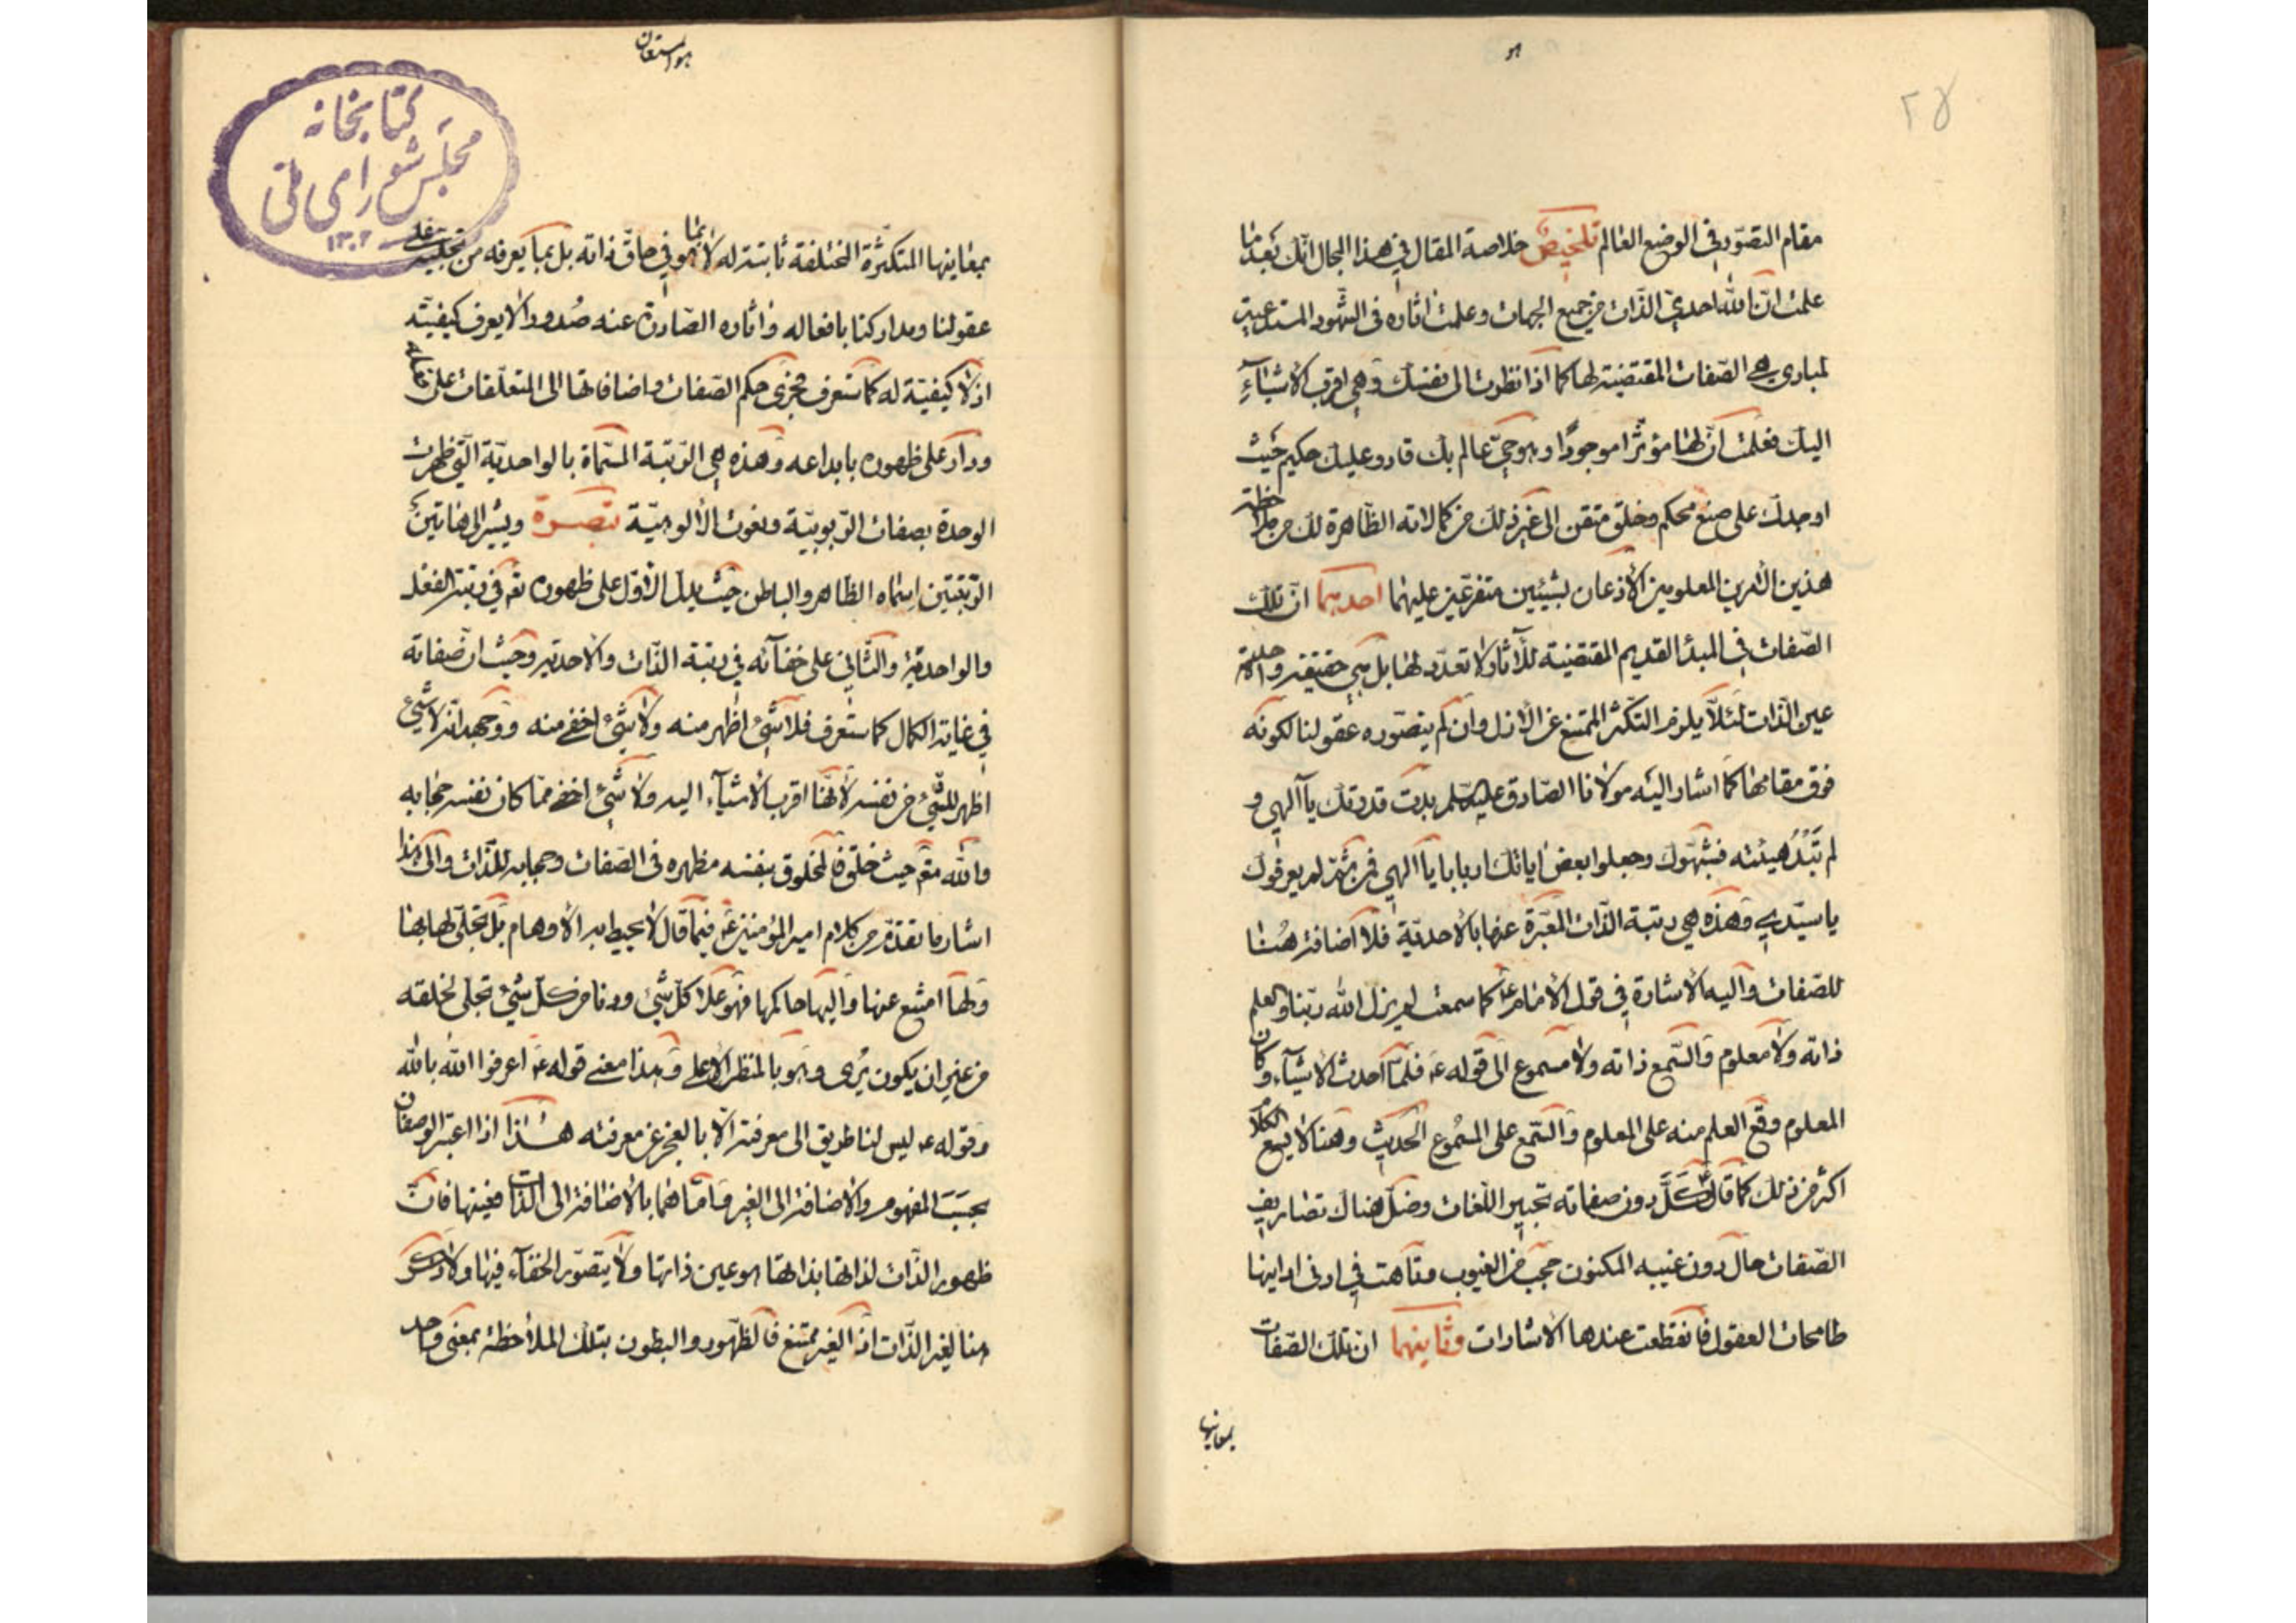 هو
۲۵
مقام التصوّر فی الوضع العالم تلخیص خلاصة المقال فی هذا المجال انّک بعد ما
علمت انّ الله احدیّ الذّات من جمیع الجهات و علمت اثاره فی الشّهود المستدعیة
لمبادی هی الصّفات المقتضیة لها کما اذا نظرت الی نفسک و هی اقرب الاشیآء
الیک فعلمت انّ لها مؤثّرا موجودًا و هو حیّ عالم بک قادر علیک حکیم حیث
اوجدک علی صنع محکم و خلق متقن الی غیر ذلک من کمالاته الظّاهرة لک من ملاحظة
هذین الامرین المعلومین الأذعان بشیئین متفرّعین علیهما احدیهما انّ تلک
الصّفات فی المبدأ القدیم المقتضیة للآثار لا تعدّد لها بل هی حقیقة واحدة
عین الذّات لئلّا یلزم التکثّر الممتنع عن الأزل و ان لم یتصوّره عقولنا لکونه
فوق مقامها کما اشار الیه مولانا الصّادق علیه السّلم بدت قدرتک یا الهی و
لم تَبْدُ هیئته فشبّهوک و جعلوا بعض ایاتک اربابا یا الهی فمن ثمّ لم یعرفوک
یا سیّدی و هذه هی رتبة الذّات المعبّرة عنها بالأحدیّة فلا اضافة هُنا
للصّفات و الیه الأشارة فی قول الأمام ع کما سمعت لم یزل الله ربّنا و العلم
ذاته و لا معلوم و السّمع ذاته و لا مسموع الی قوله ع فلمّا احدث الأشیآء و کان
المعلوم وقع العلم منه علی المعلوم و السّمع علی المسموع الحدیث و هنا لا یسع الکلام
اکثر من ذلک کما قال ع کَلَّ دون صفاته تحبیر اللّغات و ضلّ هناک تصاریف
الصّفات حال دون غیبه المکنون حجب من الغیوب و تاهت فی ادنی ادانیها
طامحات العقول فانقطعت عندها الأشارات و ثانیهما انّ تلک الصّفات
بمعانیها
هو المستعان
کتابخانه
مجلس شورای ملی
۱۳۰۲
بمعانیها المتکثّرة المختلفة ثابتة له لا بما هو فی حاقّ ذاته بل بما یعرفه من تجلّیه علی
عقولنا و مدارکنا بافعاله و اثاره الصّادرة عنه صُدورا لا یعرف کیفیّته
اذ لا کیفیّة له کما ستعرف فجری حکم الصّفات و اضافاتها الی المتعلّقات علی
و دار علی ظهوره بابداعه و هذه هی الرّتبة المسمّاة بالواحدیّة الّتی ظهرت
الوحدة بصفات الرّبوبیّة و نعوت الألوهیّة تبصرة و یشیر الی هاتین
الرّتبتین اسماه الظّاهر و الباطن حیث یدلّ الأوّل علی ظهوره تع فی رتبة الفعل
و الواحدیّة و الثّانی علی خفآئه فی رتبة الذّات و الأحدیّة و حیث انّ صفاته
فی غایة الکمال کما ستعرف فلا شیئ اظهر منه و لا شیئ اخفی منه و وجهه انّه لا شیئ
اظهر للشّیئ من نفسه لأنّها اقرب الأشیآء الیه و لا شیئ اخفی ممّا کان نفسه حجابه
و الله تع حیث خلق المخلوق بنفسه مظهره فی الصّفات و حجابه للذّات و الی هذا
اشار ما تقدّم من کلام امیر المؤمنین ع فیما قال لا یحیط به الأوهام بل تجلّی لها بها
و بها امتنع عنها و الیها حاکمها فهو علا کلّ شیئ و دنا من کلّ شیئ تجلّی لخلقه
من غیر ان یکون یُری و هو بالمنظر الأعلی و هذا معنی قوله ع اعرفوا الله بالله
و قوله ع لیس لنا طریق الی معرفته الّا بالعجز عن معرفته هذا اذا اعتبر الوصفان
بحسب المفهوم و الاضافة الی الغیر و امّا هما بالأضافة الی الذّات فعینها فانّ
ظهور الذّات لذاتها بذاتها هو عین ذاتها و لا یتصوّر الخفآء فیها و لا ذکر
هنا لغیر الذّات اذ الغیر ممتنع فالظّهور و البطون بتلک الملاحظة بمعنی واحد